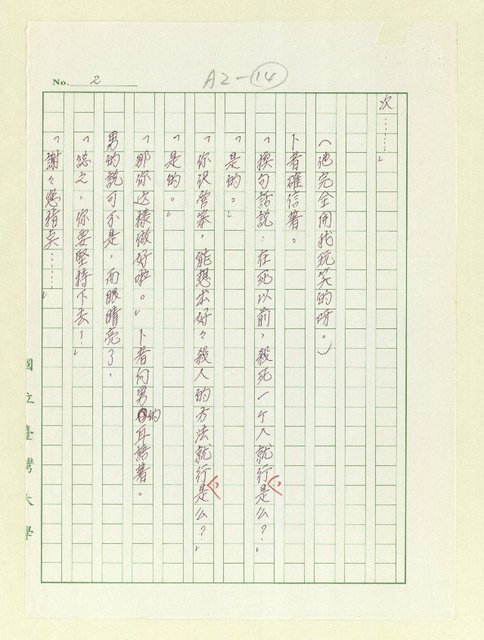 No. 2
A2-14
次……」
（他完全開我玩笑的呀。）
卜者確信著。
「換句話說：在死以前，殺死一个人就行是么？」
「是的。」
「你決管家，能想出好々殺人的方法就行是么？」
「是的。」
「那你这樣做好啦。」卜者向男的耳語著。
男的說可不是，而眼睛亮了，
「總之，你要堅持下去！」
「謝々您指奌……」
國立臺灣大學